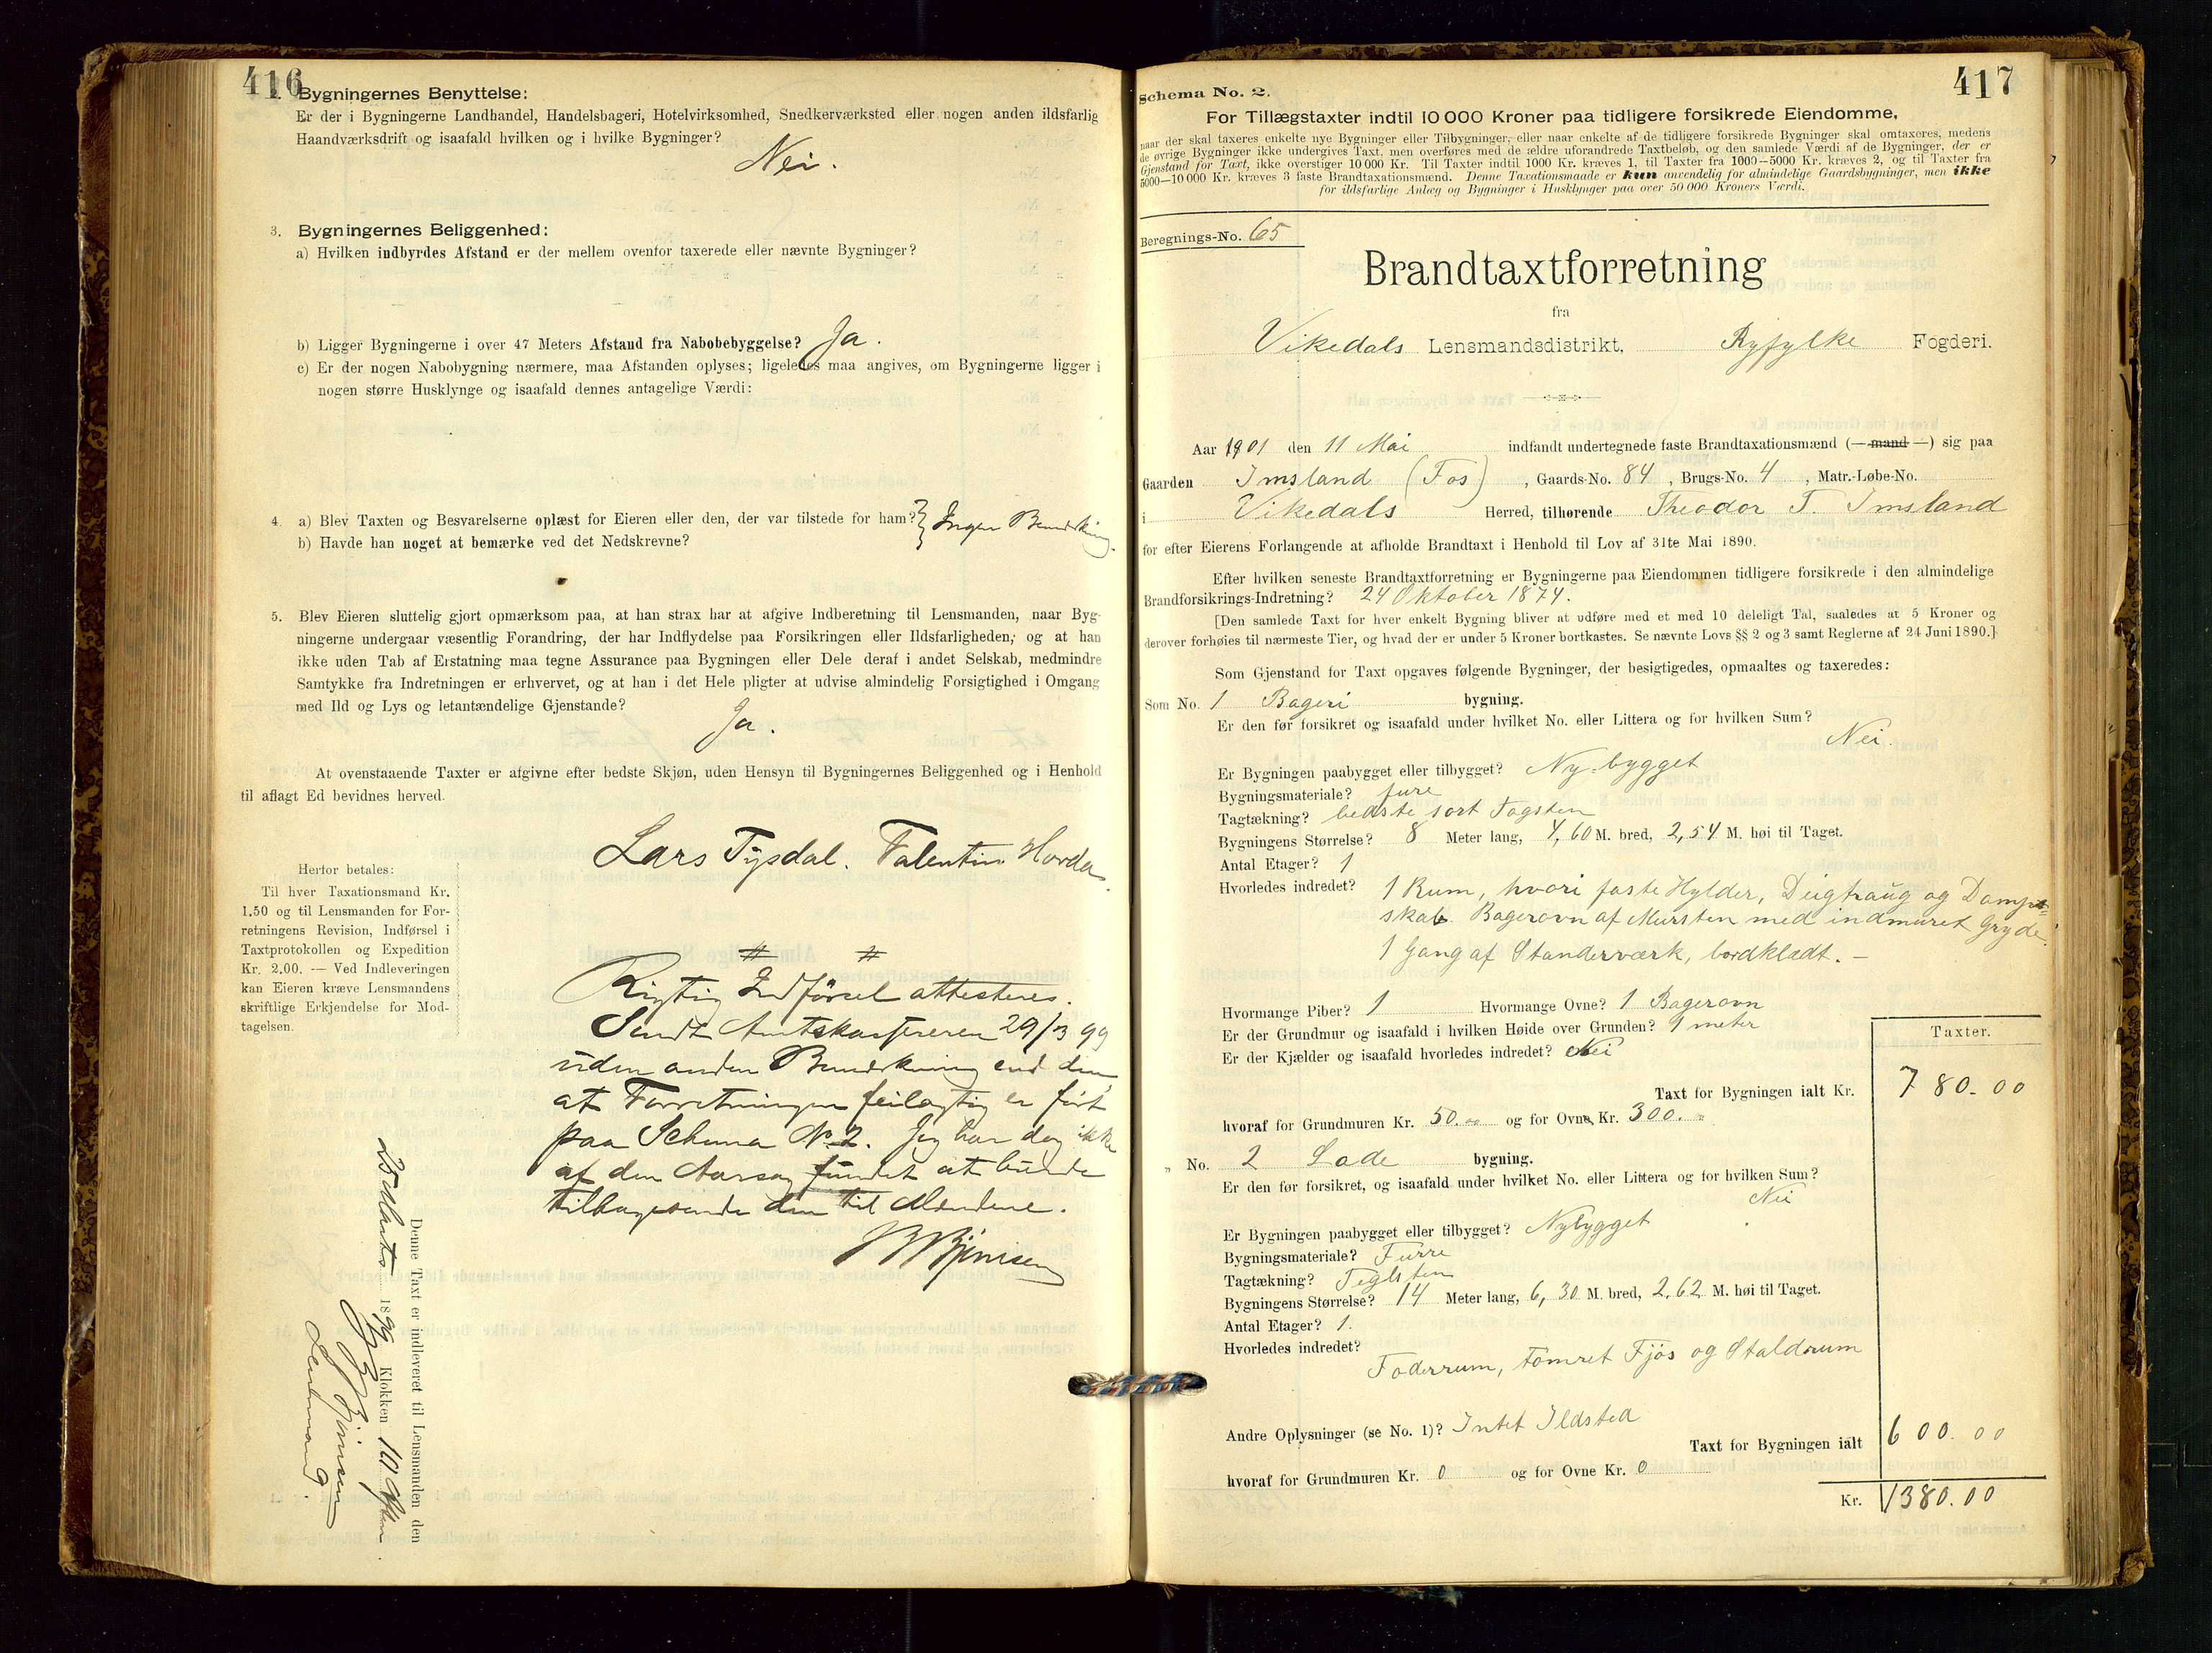 416
2. Bygningernes Benyttelse:
Er der i Bygningerne Landhandel, Handelsbageri, Hotelvirksomhed, Snedkerværksted eller nogen anden ildsfarlig
Haandværksdrift og isaafald hvilken og i hvilke Bygninger?
Nei.
3. Bygningernes Beliggenhed:
a) Hvilken indbyrdes Afstand er der mellem ovenfor taxerede eller nævnte Bygninger?
b) Ligger Bygningerne i over 47 Meters Afstand fra Nabobebyggelse? Ja.
c) Er der nogen Nabobygning nærmere, maa Afstanden oplyses; ligeledes maa angives, om Bygningerne ligger i
nogen større Husklynge og isaafald dennes antagelige Værdi:
4. a) Blev Taxten og Besvarelserne oplæst for Eieren eller den, der var tilstede for ham? } Ingen Bemærkning.
b) Havde han noget at bemærke ved det Nedskrevne?
5. Blev Eieren sluttelig gjort opmærksom paa, at han strax har at afgive Indberetning til Lensmanden, naar Byg-
ningerne undergaar væsentlig Forandring, der har Indflydelse paa Forsikringen eller Ildsfarligheden, og at han
ikke uden Tab af Erstatning maa tegne Assurance paa Bygningen eller Dele deraf i andet Selskab, medmindre
Samtykke fra Indretningen er erhvervet, og at han i det Hele pligter at udvise almindelig Forsigtighed i Omgang
med Ild og Lys og letantændelige Gjenstande?
Ja.
At ovenstaaende Taxter er afgivne efter bedste Skjøn, uden Hensyn til Bygningernes Beliggenhed og i Henhold
til aflagt Ed bevidnes herved.
Lars Tysdal. Valentin Hovda.
Herfor betales:
Til hver Taxationsmand Kr.
1.50 og til Lensmanden for For-
retningens Revision, Indførsel i
Taxtprotokollen og Expedition
Kr. 2.00. — Ved Indleveringen
kan Eieren kræve Lensmandens
skriftlige Erkjendelse for Mod-
tagelsen.
Rigtig Indførsel attesteres.
Sendt Amtskassereren 29/3 99
uden anden Bemærkning end den,
at Forretningen feilagtig er ført
paa Schema No 2. Jeg har dog ikke
af den Aarsag fundet at burde
tilbagesende den til Mændene.
Denne Taxt er indleveret til Lensmanden den
25 Marts 1899 Klokken 10 Aften
Lensmand.
417
Schema No. 2.
For Tillægstaxter indtil 10 000 Kroner paa tidligere forsikrede Eiendomme,
naar der skal taxeres enkelte nye Bygninger eller Tilbygninger, eller naar enkelte af de tidligere forsikrede Bygninger skal omtaxeres, medens
de øvrige Bygninger ikke undergives Taxt, men overføres med de ældre uforandrede Taxtbeløb, og den samlede Værdi af de Bygninger, der er
Gjenstand for Taxt, ikke overstiger 10 000 Kr. Til Taxter indtil 1000 Kr. kræves 1, til Taxter fra 1000—5000 Kr. kræves 2, og til Taxter fra
5000—10 000 Kr. kræves 3 faste Brandtaxationsmænd. Denne Taxationsmaade er kun anvendelig for almindelige Gaardsbygninger, men ikke
for ildsfarlige Anlæg og Bygninger i Husklynger paa over 50 000 Kroners Værdi.
Beregnings-No. 65
Brandtaxtforretning
fra
Vikedals Lensmandsdistrikt, Ryfylke Fogderi.
Aar 1901 den 11 Mai indfandt undertegnede faste Brandtaxationsmænd (—mand—) sig paa
Gaarden Imsland (Fos), Gaards-No. 84, Brugs-No. 4, Matr.-Løbe-No.
i Vikedals Herred, tilhørende Theodor T. Imsland
for efter Eierens Forlangende at afholde Brandtaxt i Henhold til Lov af 31te Mai 1890.
Efter hvilken seneste Brandtaxtforretning er Bygningerne paa Eiendommen tidligere forsikrede i den almindelige
Brandforsikrings-Indretning? 24 Oktober 1874.
[Den samlede Taxt for hver enkelt Bygning bliver at udføre med et med 10 deleligt Tal, saaledes at 5 Kroner og
derover forhøies til nærmeste Tier, og hvad der er under 5 Kroner bortkastes. Se nævnte Lovs §§ 2 og 3 samt Reglerne af 24 Juni 1890.]
Som Gjenstand for Taxt opgaves følgende Bygninger, der besigtigedes, opmaaltes og taxeredes:
Som No. 1 Bageri bygning.
Er den før forsikret og isaafald under hvilket No. eller Littera og for hvilken Sum?
Nei.
Er Bygningen paabygget eller tilbygget? Nybygget
Bygningsmateriale? fure
Tagtækning? bedste sort Tagsten
Bygningens Størrelse? 8 Meter lang, 4,60 M. bred, 2,54 M. høi til Taget.
Antal Etager? 1
Hvorledes indredet? 1 Rum, hvori faste Hylder, Deigtraug og Damp-
skab. Bagerovn af Mursten med indmuret Gryde.
1 Gang af Standerværk, bordklædt. —
Hvormange Piber? 1 Hvormange Ovne? 1 Bagerovn
Er der Grundmur og isaafald i hvilken Høide over Grunden? 1 meter
Er der Kjælder og isaafald hvorledes indredet? Nei
Taxter.
Taxt for Bygningen ialt Kr. 780.00
hvoraf for Grundmuren Kr. 50.00 og for Ovne Kr. 300.
„ No. 2 Lade bygning.
Er den før forsikret, og isaafald under hvilket No. eller Littera og for hvilken Sum?
Nei
Er Bygningen paabygget eller tilbygget? Nybygget
Bygningsmateriale? Furre
Tagtækning? Teglsten
Bygningens Størrelse? 14 Meter lang, 6,30 M. bred, 2,62 M. høi til Taget.
Antal Etager? 1.
Hvorledes indredet?
Foderrum, tømret Fjøs og Staldrum
Andre Oplysninger (se No. 1)? Intet Ildsted
Taxt for Bygningen ialt 600.00
hvoraf for Grundmuren Kr. 0 og for Ovne Kr. 0
Kr. 1380.00